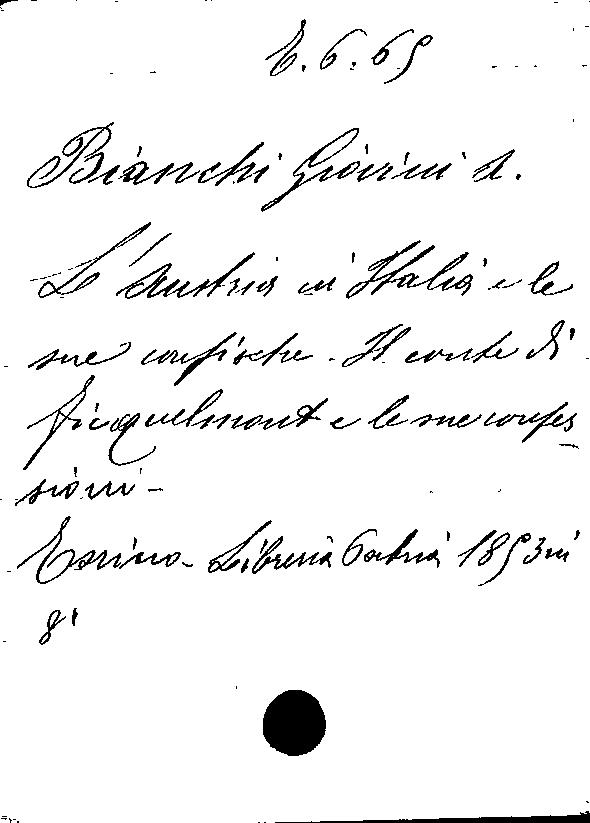 E. 6. 65
Bianchi Giovini A.
L'Austria in Italia e le
sue confische. Il conte di
Ficquelmont e le sue confes
sioni -
Torino - Libreria Patria 1853 in
8°